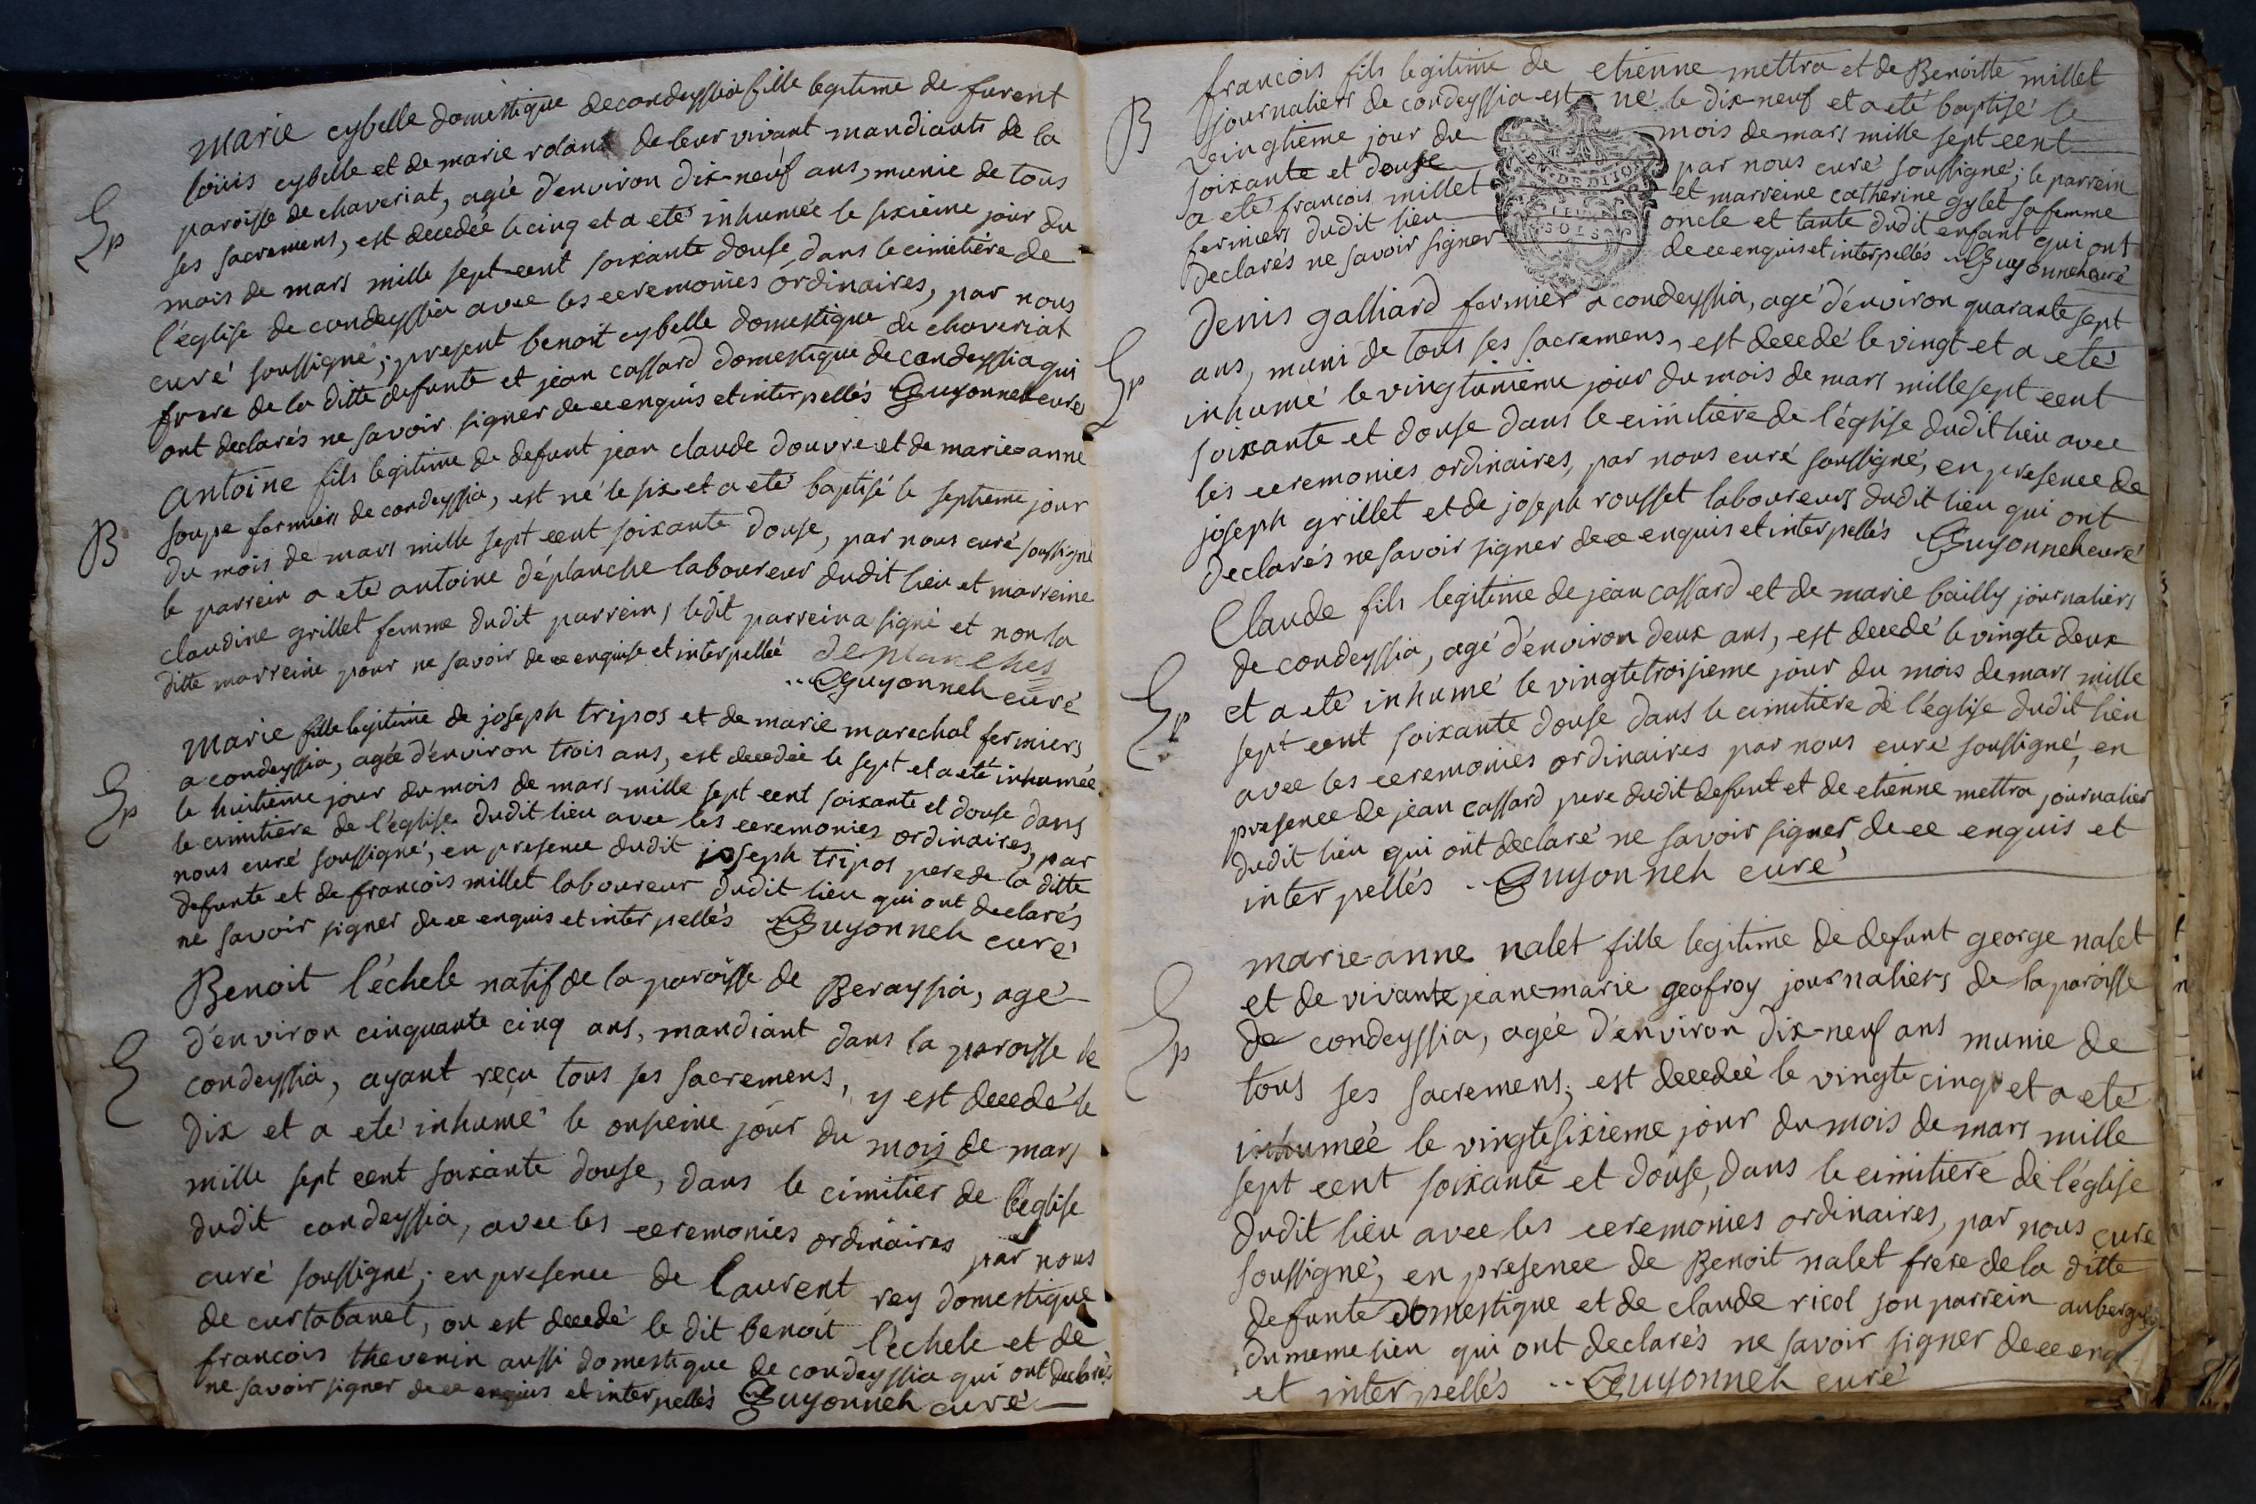 Marie cybelle domestique de condeyssia fille legitime de furent
loüis cybelle et de marie rolant de leur vivant mandiants de la
paroisse de chaveriat, agée d'environ dix-neuf ans, munie de tous
Sp
ses sacremens, est decedée le cinq et a eté inhumée le sixieme jour du
mois de mars mille sept-cent soixante douse, dans le cimitière de
l'église de condeyssia avec les ceremonies ordinaires, par nous
curé soussigné; present benoit cybelle domestique de chaveriat
frere de la ditte defunte et jean cassard domestique de condeyssia qui
ont declarés ne savoir signer de ce enquis et interpellés Guyonneh curé
antoine fils legitime de defunt jean claude douvre et de marie=anne
soupe fermiers de condeyssia, est né le six et a eté baptisé le septieme jour
B
du mois de mars mille sept cent soixante douse, par nous curé soussigné
le parrein a eté antoine déplanche laboureur dudit lieu et marreine
claudine grillet femme dudit parrein, ledit parrein a signé et non la
ditte marreine pour ne savoir de ce enquise et interpellée deplanches
Guyonneh curé
Marie fille legitime de joseph tripos et de marie marechal fermiers
a condeyssia, agée d'environ trois ans, est decedée le sept et a eté inhumée
Sp
le huitieme jour du mois de mars mille sept cent soixante et douse dans
le cimitière de l'église dudit lieu avec les ceremonies ordinaires, par
nous curé soussigné, en presence dudit joseph tripos pere de la ditte
defunte et de francois millet laboureur dudit lieu qui ont declarés
ne savoir signer de ce enquis et interpellés Guyonneh curé
Benoit l'échele natif de la paroisse de Beraysia, agé
d'environ cinquante cinq ans, mandiant dans la paroisse de
S
condeyssia, ayant reçu tous ses sacremens, y est decedé le
dix et a eté inhumé le onsieme jour du mois de mars
mille sept cent soixante douse, dans le cimitier de l'eglise
dudit condeyssia, avec les ceremonies ordinaires par nous
curé soussigné; en presence de laurent rey domestique
de curtabanet, ou est decedé le dit benoit l'échele et de
francois thevenin aussi domestique de condeyssia qui ont declarés
ne savoir signer de ce enquis et interpellés Guyonneh curé
francois fils legitime de etienne mettra et de Benoitte millet
B
journaliers de condeyssia est né le dix-neuf et a eté baptisé le
vingtieme jour du mois de mars mille sept cent
soixante et douse par nous curé soussigné; le parrein
a eté francois millet et marreine catherine gylet sa femme
fermiers dudit lieu oncle et tante dudit enfant qui ont
declarés ne savoir signer de ce enquis et interpellés Guyonneh curé
Denis galliard fermier a condeyssia, agé d'environ quarante sept
Sp
ans, muni de tous ses sacremens, est decedé le vingt et a eté
inhumé le vingtunieme jour du mois de mars mille sept cent
soixante et douse dans le cimitière de l'église dudit lieu avec
les ceremonies ordinaires, par nous curé soussigné, en presence de
joseph grillet et de joseph rousset laboureurs dudit lieu qui ont
declarés ne savoir signer de ce enquis et interpellés Guyonneh curé
Claude fils legitime de jean cassard et de marie bailly journaliers
de condeyssia, agé d'environ deux ans, est decedé le vingte deux
Sp
et a eté inhumé le vingtetroisieme jour du mois de mars mille
sept cent soixante douse dans le cimitière de l'église dudit lieu
avec les ceremonies ordinaires par nous curé soussigné, en
presence de jean cassard pere dudit defunt et de etienne mettra journalier
dudit lieu qui ont declaré ne savoir signer de ce enquis et
interpellés Guyonneh curé
marie-anne nalet fille legitime de defunt george nalet
et de vivante jeane marie geofroy journaliers de la paroisse
Sp
de condeyssia, agée d'environ dix-neuf ans munie de
tous ses sacremens, est decedeé le vingte cinq et a eté
inhumée le vingtesixieme jour du mois de mars mille
sept cent soixante et douse, dans le cimitière de l'église
dudit lieu avec les ceremonies ordinaires, par nous curé
soussigné, en presence de Benoit nalet frere de la ditte
defunte domestique et de claude ricol son parrein
du meme lieu qui ont declarés ne savoir signer de ce
et interpellés Guyonneh curé